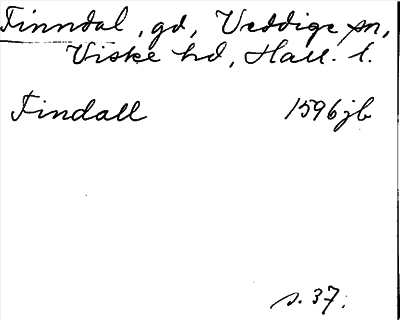 Finndal, gd, Veddige sn,
Viske hd, Hall. l.
Findall 1596 jb
s. 37.